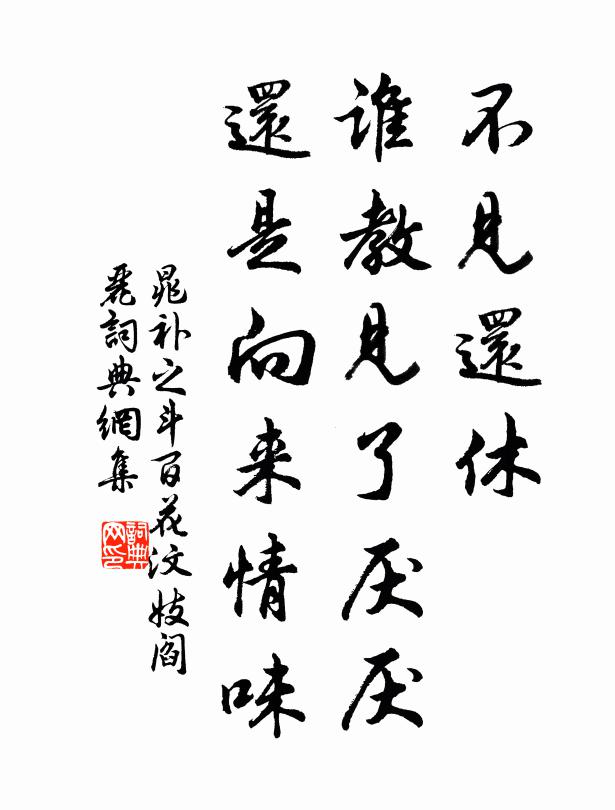 不見還休
谁教見了厌厌
還是向来情味
晁补之斗百花汶妓阎
麗詞典網集
詞典网印